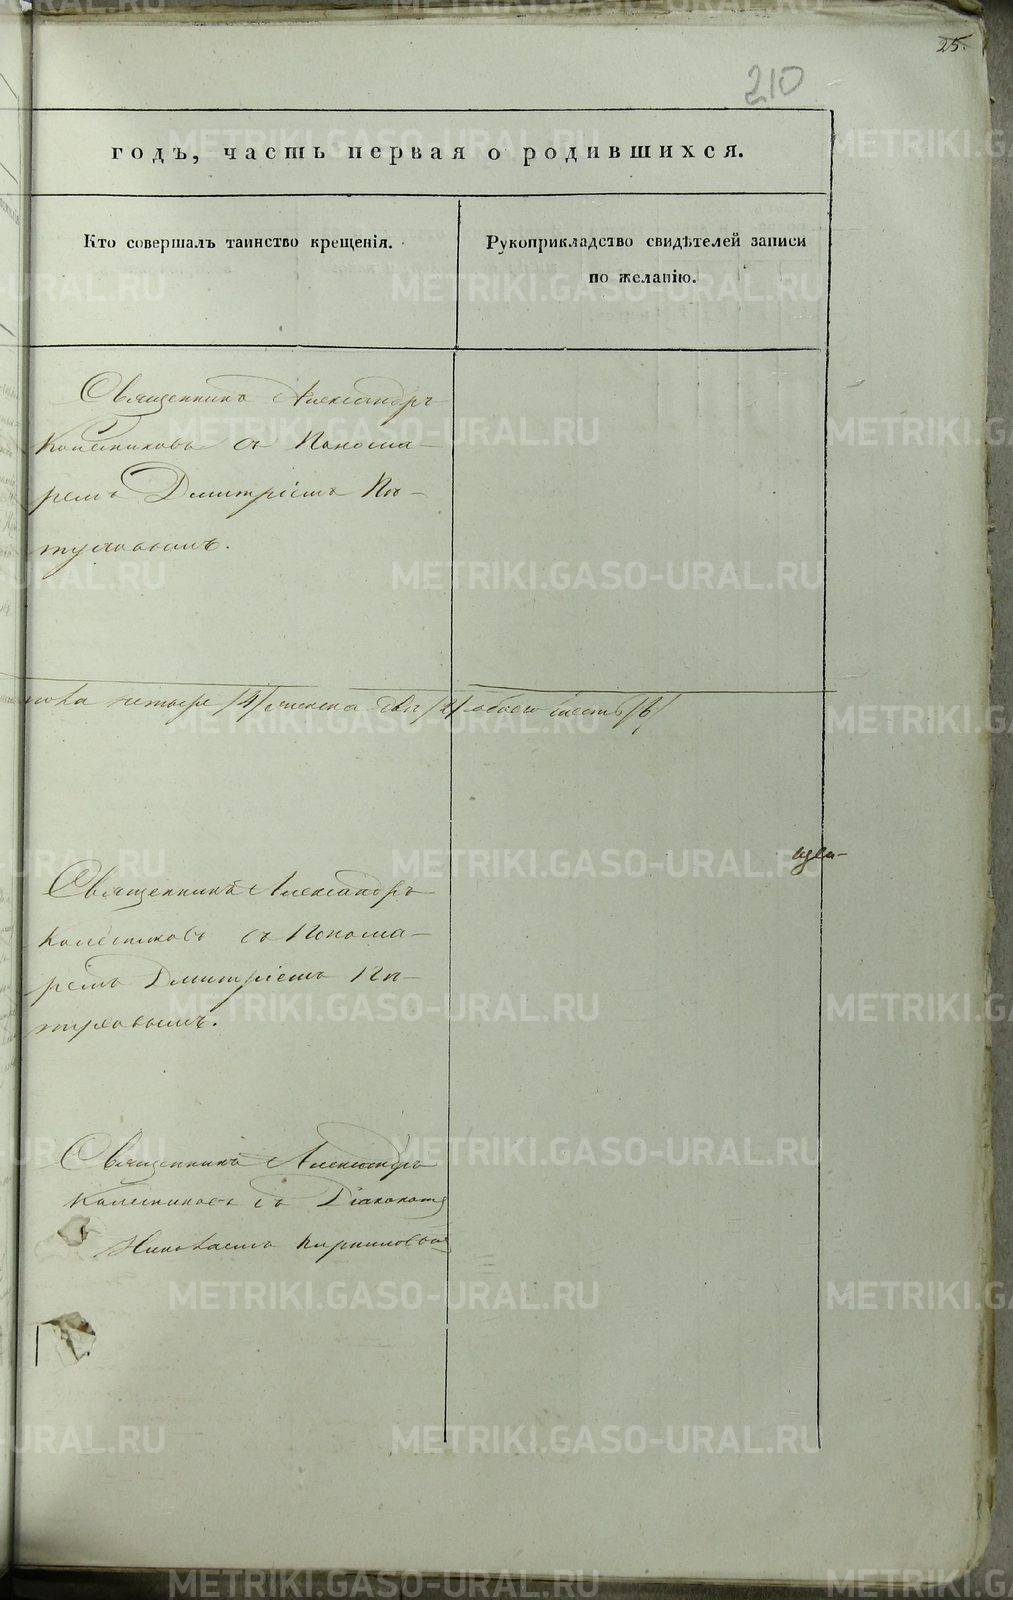 25.
210
годъ, часть первая о родившихся.
Кто совершалъ таинство крещенія.
Рукоприкладство свидѣтелей записи
по желанію.
Священникъ Александръ
Колесниковъ съ Понома-
ремъ Дмитріемъ Пѣ-
туховымъ.
четыре /4/ женска два /2/ обоего шесть /6/
Священникъ Александръ
Колесниковъ съ Понома-
ремъ Дмитріемъ Пѣ-
туховымъ.
Священникъ Александръ
Колесниковъ съ Діакономъ
Николаемъ
METRIKI.GASO-URAL.RU